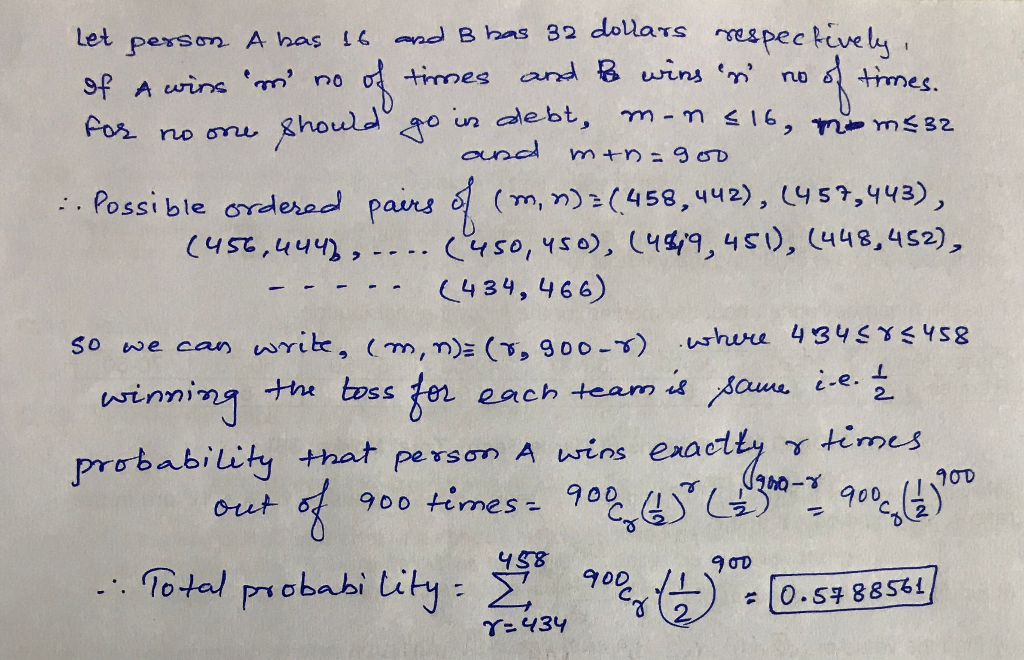 Let person A has 16 and B has 32 dollars respectively,
If A wins 'm' no of times and B wins 'n' no of times.
For no one should go in debt, m-n ≤ 16, m≤32
and m+n=900
∴ Possible ordered pairs of (m,n)≡(458,442), (457,443),
(456,444), .... (450,450), (449,451), (448,452),
- - - - - (434,466)
So we can write, (m,n)≡(r, 900-r) where 434≤r≤458
winning the toss for each team is same i.e. 1/2
probability that person A wins exactly r times
out of 900 times = 900Cr (1/2)^r (1/2)^900-r = 900Cr (1/2)^900
∴ Total probability = Σ r=434 458 900Cr (1/2)^900 = 0.5788561